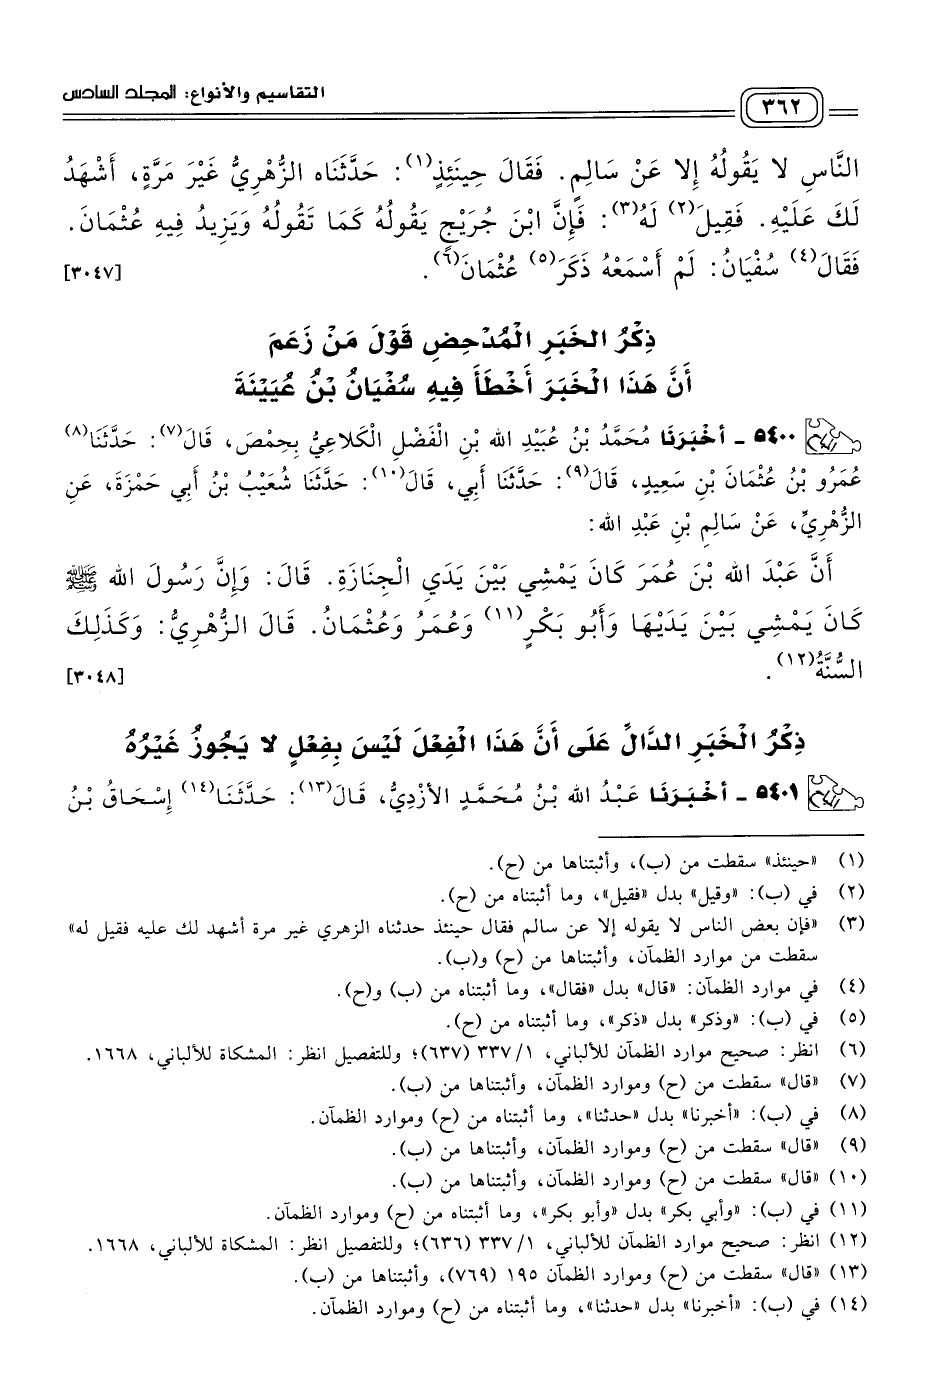 التقاسيم والأنواع: المجلد السادس
٣٦٢
النَّاسِ لا يَقُولُهُ إلا عَنْ سَالِمٍ. فَقَالَ حِينَئِذٍ(١): حَدَّثَنَاه الزُّهْرِيُّ غَيْرَ مَرَّةٍ، أَشْهَدُ
لَكَ عَلَيْهِ. فَقِيلَ(٢) لَهُ(٣): فَإِنَّ ابْنَ جُرَيْجٍ يَقُولُهُ كَمَا تَقُولُهُ وَيَزِيدُ فِيهِ عُثْمَانَ.
فَقَالَ(٤) سُفْيَانُ: لَمْ أَسْمَعْهُ ذَكَرَ(٥) عُثْمَانَ(٦). [٣٠٤٧]
ذِكْرُ الخَبَرِ الْمُدْحِضِ قَوْلَ مَنْ زَعَمَ
أَنَّ هَذَا الْخَبَرَ أَخْطَأَ فِيهِ سُفْيَانُ بْنُ عُيَيْنَةَ
٥٤٠٠ ـ أَخْبَرَنَا مُحَمَّدُ بْنُ عُبَيْدِ الله بْنِ الْفَضْلِ الْكَلاعِيُّ بِحِمْصَ، قَالَ(٧): حَدَّثَنَا(٨)
عَمْرُو بْنُ عُثْمَانَ بْنِ سَعِيدٍ، قَالَ(٩): حَدَّثَنَا أَبِي، قَالَ(١٠): حَدَّثَنَا شُعَيْبُ بْنُ أَبِي حَمْزَةَ، عَنِ
الزُّهْرِيِّ، عَنْ سَالِمِ بْنِ عَبْدِ الله:
أَنَّ عَبْدَ الله بْنَ عُمَرَ كَانَ يَمْشِي بَيْنَ يَدَيِ الْجِنَازَةِ. قَالَ: وَإِنَّ رَسُولَ الله ﷺ
كَانَ يَمْشِي بَيْنَ يَدَيْهَا وَأَبُو بَكْرٍ(١١) وَعُمَرُ وَعُثْمَانُ. قَالَ الزُّهْرِيُّ: وَكَذَلِكَ
السُّنَّةُ(١٢). [٣٠٤٨]
ذِكْرُ الْخَبَرِ الدَّالِّ عَلَى أَنَّ هَذَا الْفِعْلَ لَيْسَ بِفِعْلٍ لا يَجُوزُ غَيْرُهُ
٥٤٠١ ـ أَخْبَرَنَا عَبْدُ الله بْنُ مُحَمَّدٍ الأزْدِيُّ، قَالَ(١٣): حَدَّثَنَا(١٤) إِسْحَاقُ بْنُ
(١) «حينئذ» سقطت من (ب)، وأثبتناها من (ح).
(٢) في (ب): «وقيل» بدل «فقيل»، وما أثبتناه من (ح).
(٣) «فإن بعض الناس لا يقوله إلا عن سالم فقال حينئذ حدثناه الزهري غير مرة أشهد لك عليه فقيل له»
سقطت من موارد الظمآن، وأثبتناها من (ح) و(ب).
(٤) في موارد الظمآن: «قال» بدل «فقال»، وما أثبتناه من (ب) و(ح).
(٥) في (ب): «وذكر» بدل «ذكر»، وما أثبتناه من (ح).
(٦) انظر: صحيح موارد الظمآن للألباني، ١/ ٣٣٧ (٦٣٧)؛ وللتفصيل انظر: المشكاة للألباني، ١٦٦٨.
(٧) «قال» سقطت من (ح) وموارد الظمآن، وأثبتناها من (ب).
(٨) في (ب): «أخبرنا» بدل «حدثنا»، وما أثبتناه من (ح) وموارد الظمآن.
(٩) «قال» سقطت من (ح) وموارد الظمآن، وأثبتناها من (ب).
(١٠) «قال» سقطت من (ح) وموارد الظمآن، وأثبتناها من (ب).
(١١) في (ب): «وأبي بكر» بدل «وأبو بكر»، وما أثبتناه من (ح) وموارد الظمآن.
(١٢) انظر: صحيح موارد الظمآن للألباني، ١/ ٣٣٧ (٦٣٦)؛ وللتفصيل انظر: المشكاة للألباني، ١٦٦٨.
(١٣) «قال» سقطت من (ح) وموارد الظمآن ١٩٥ (٧٦٩)، وأثبتناها من (ب).
(١٤) في (ب): «أخبرنا» بدل «حدثنا»، وما أثبتناه من (ح) وموارد الظمآن.